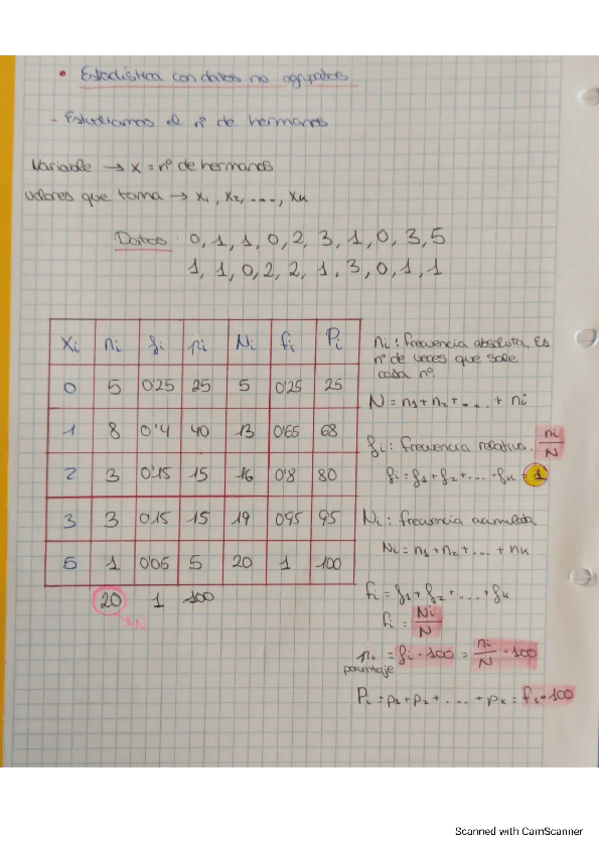 • Estadística con datos no agrupados
- Estudiamos el nº de hermanos
Variable → X = nº de hermanos
Valores que toma → x₁, x₂, ---, xₖ
Datos: 0, 1, 1, 0, 2, 3, 1, 0, 3, 5
1, 1, 0, 2, 2, 1, 3, 0, 1, 1
xi ni fi pi Ni Fi Pi
0 5 0'25 25 5 0'25 25
1 8 0'4 40 13 0'65 68
2 3 0'15 15 16 0'8 80
3 3 0'15 15 19 0'95 95
5 1 0'05 5 20 1 100
20 1 100
N
ni: frecuencia absoluta. Es
nº de veces que sale
cada nº.
N = n₁ + n₂ + - - . + ni
fi: frecuencia relativa. ni/N
fi = f₁ + f₂ + ... + fₖ = 1
Ni: frecuencia acumulada
Ni = n₁ + n₂ + ... + nₖ
Fi = f₁ + f₂ + ... + fₖ
Fi = Ni/N
pi = fi · 100 = ni/N · 100
porcentaje
Pi = p₁ + p₂ + ... + pₖ = Fi · 100
Scanned with CamScanner